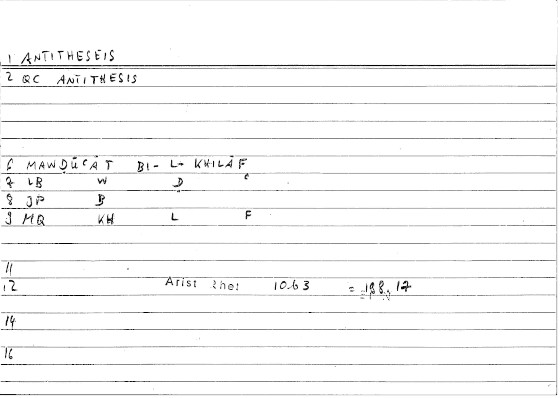 1 ANTITHESEIS
2 QC ANTITHESIS
6 MAWḌŪʿĀT BI- L- KHILĀF
7 LB W Ḍ ʿ
8 JP B
9 MQ KH L F
11
12 Arist Rhet 10.63 = 188, 17
14
16